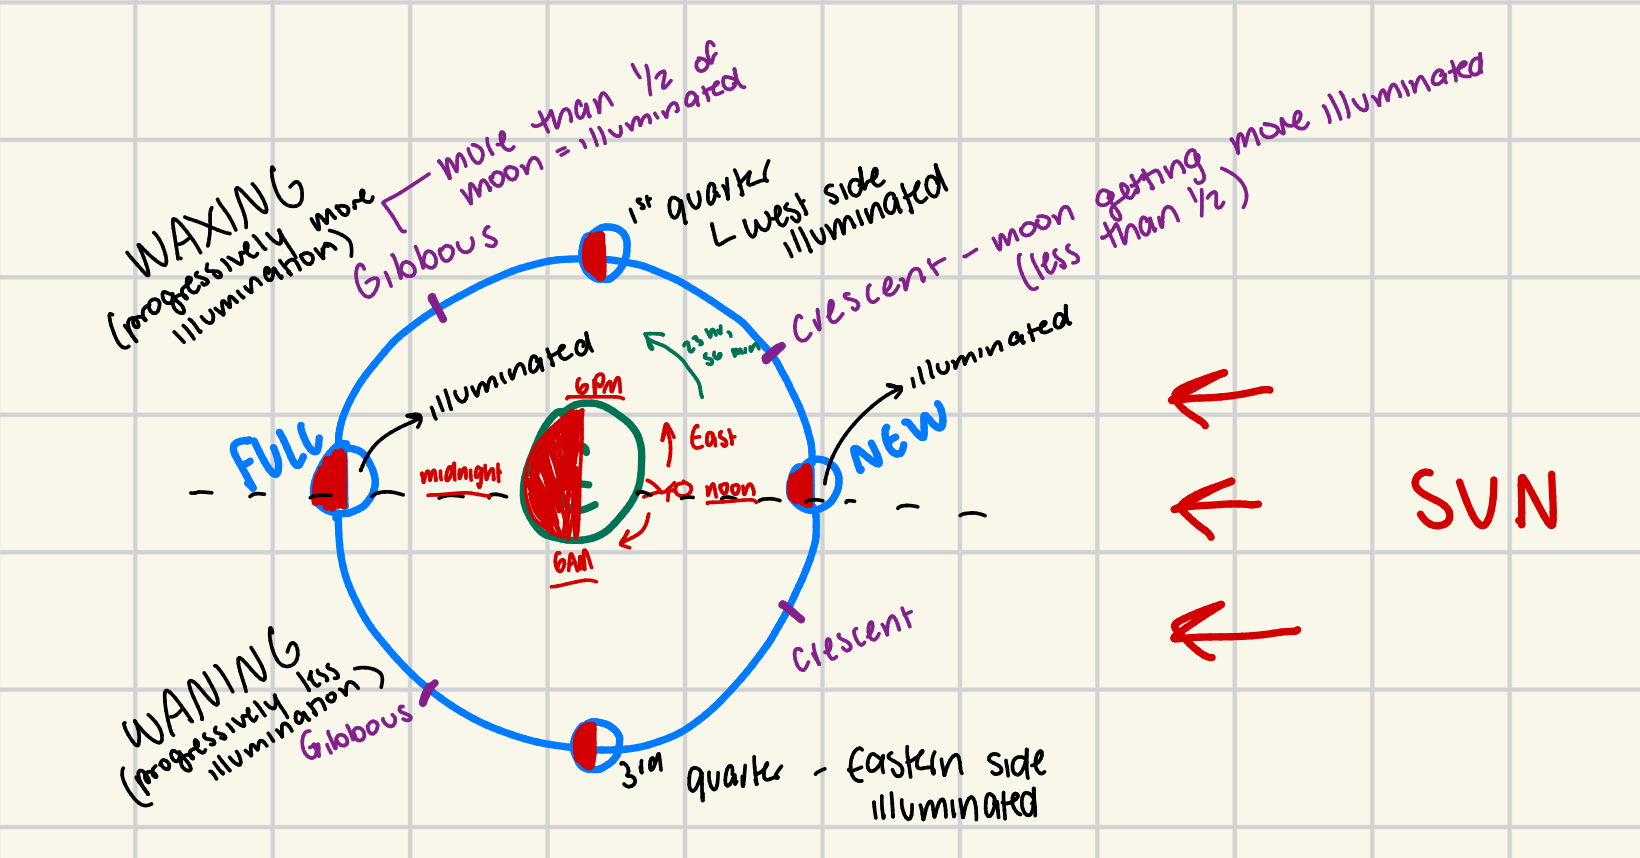 WAXING
(progressively more
illumination)
Gibbous
more than 1/2 of
moon = illuminated
1st quarter
West side
illuminated
Crescent - moon getting more illuminated
(less than 1/2)
23 hr,
56 min
illuminated
illuminated
6PM
East
FULL
midnight
noon
NEW
SUN
6AM
Crescent
WANING
(progressively less
illumination)
Gibbous
3rd quarter - Eastern side
illuminated